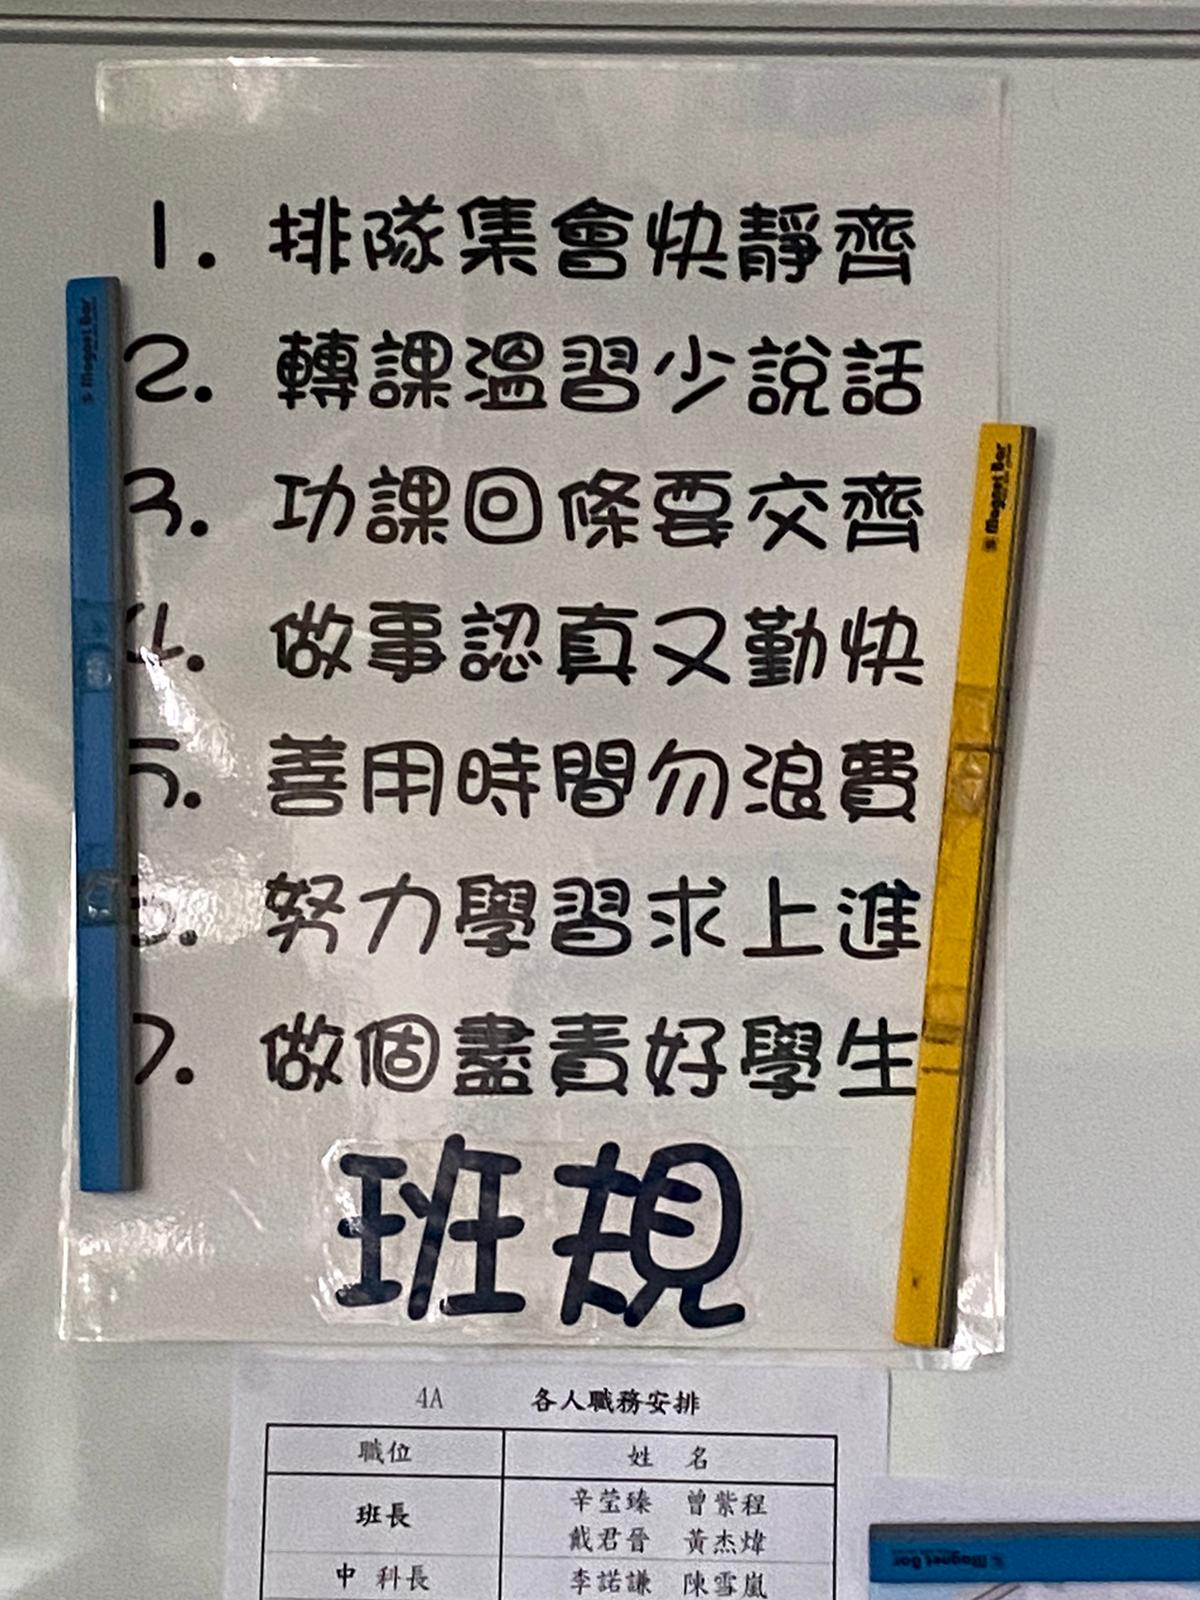 1. 排隊集會快靜齊
2. 轉課溫習少說話
3. 功課回條要交齊
4. 做事認真又勤快
5. 善用時間勿浪費
6. 努力學習求上進
7. 做個盡責好學生
班規
Magnet Bar
Magnet Bar
4A 各人職務安排
職位 姓 名
班長 辛莹臻 曾紫程
戴君晉 黃杰煒
中 科長 李諾謙 陳雪嵐
Magnet Bar